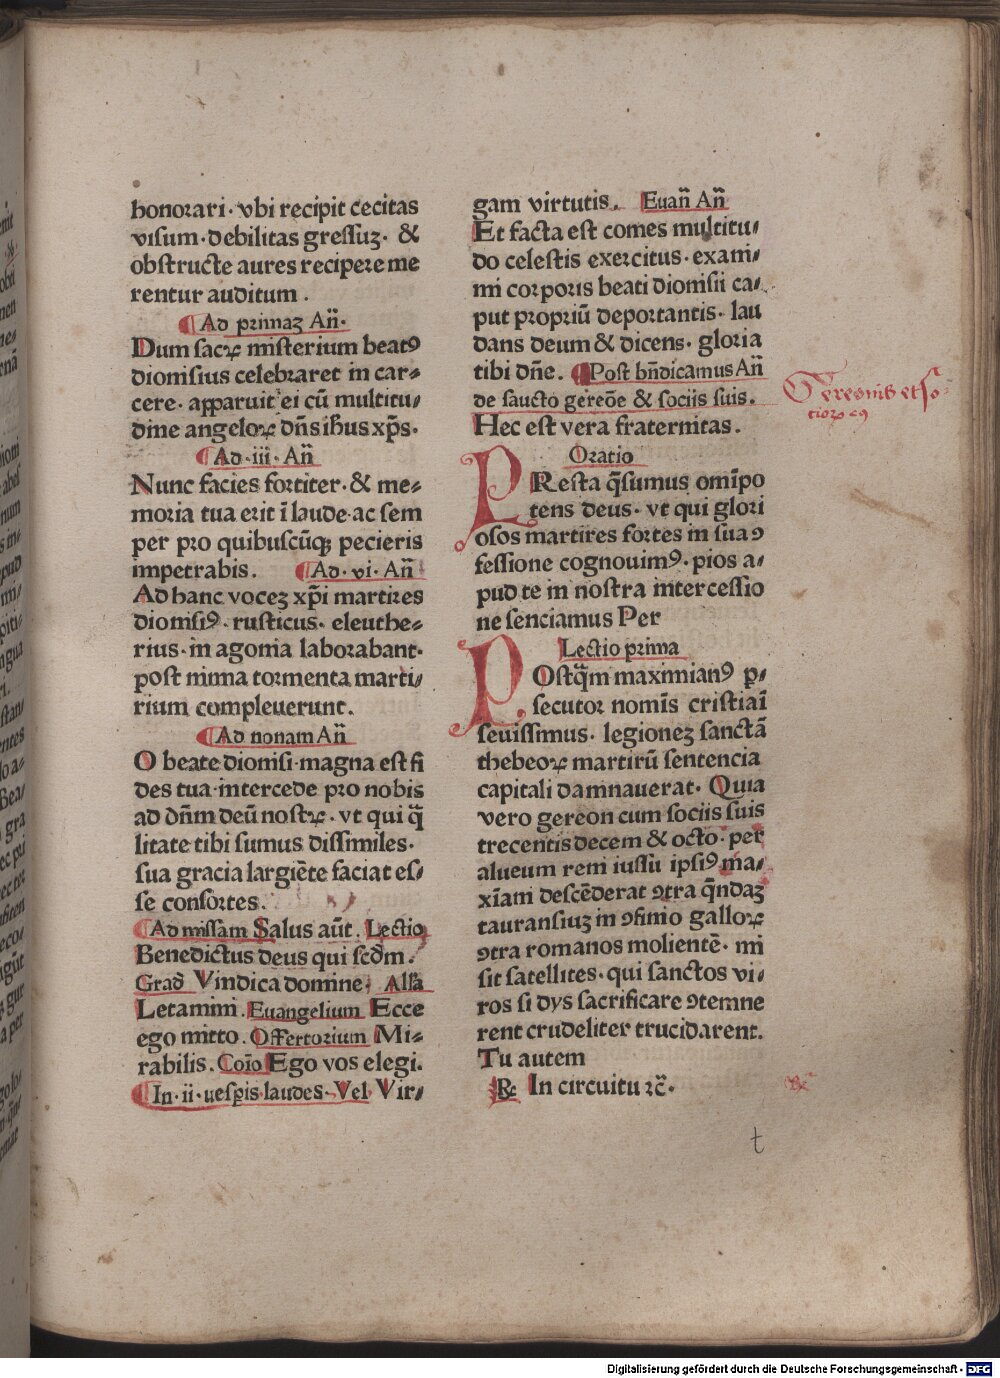 honorari · vbi recipit cecitas
visum · debilitas gressuꝫ · &
obstructe aures recipere me
rentur auditum .
Ad primaꝫ An̄ ·
Dum sacꝝ misterium beatꝰ
dionisius celebraret in car⸗
cere · apparuit ei cū multitu⸗
dine angeloꝝ dn̄s ihus xp̄s ·
Ad · iii · An̄
Nunc facies fortiter · & me⸗
moria tua erit ī laude · ac sem
per pro quibuscūqꝫ pecieris
impetrabis . Ad · vi · An̄
Ad hanc voceꝫ xp̄i martires
dionisiꝰ · rusticus · eleuthe⸗
rius · in agonia laborabant ·
post nimia tormenta marti⸗
rium compleuerunt .
Ad nonam An̄
O beate dionisi · magna est fi
des tua · intercede pro nobis
ad dn̄m deū nostꝝ · vt qui q̄
litate tibi sumus dissimiles ·
sua gracia largiēte faciat es⸗
se consortes .
Ad missam Salus aūt . Lectio
Benedictus deus qui scd̄m .
Grad̄ Vindica domine · Alła
Letamini . Euangelium Ecce
ego mitto . Offertorium Mi⸗
rabilis . Coīo Ego vos elegi .
In · ii · uesꝑis laudes · Vel Vir⸗
gam virtutis . Euan̄ An̄
Et facta est comes multitu⸗
do celestis exercitus · exani⸗
mi corporis beati dionisii ca⸗
put propriū deportantis · lau
dans deum & dicens · gloria
tibi dn̄e . Post bn̄dicamus An̄
de sancto gereōe & sociis suis .
Hec est vera fraternitas .
Gereonis et so⸗
cioꝝ eꝰ
Oratio
PResta q̄sumus omīpo
tens deus · vt qui glori
osos martires fortes in sua ꝯ
fessione cognouimꝰ · pios a⸗
pud te in nostra intercessio
ne senciamus Per
Lectio prima
POstq̄m maximianꝰ ꝑ⸗
secutor nomīs cristiaī
seuissimus · legioneꝫ sanctā
thebeoꝝ martirū sentencia
capitali damnauerat · Quia
vero gereon cum sociis suis
trecentis decem & octo · per
alueum reni iussu ipsiꝰ ma⸗
xīani descēderat ꝯtra q̄ndaꝫ
tauransiuꝫ in ꝯfinio galloꝝ
ꝯtra romanos molientē · mi
sit satellites · qui sanctos vi⸗
ros si dys sacrificare ꝯtemne
rent crudeliter trucidarent .
Tu autem
℟ In circuitu ꝛc̄ ·
t
Digitalisierung gefördert durch die Deutsche Forschungsgemeinschaft - DFG